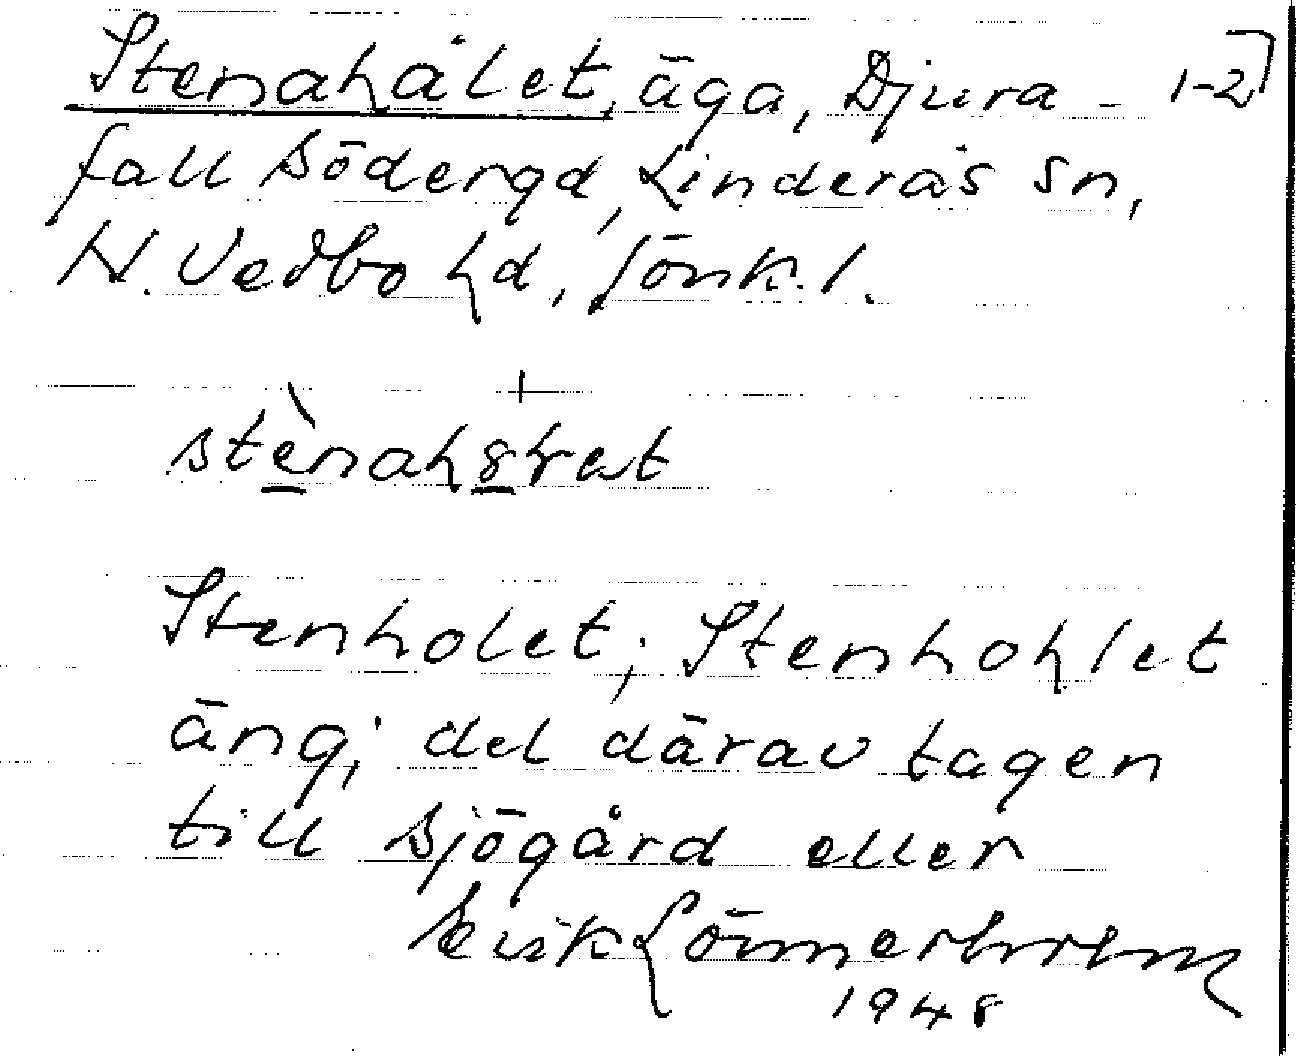 Stenahålet, äga, Djura- 1-2]
fall Södergd, Linderås sn,
N. Vedbo hd, Jönk. l.
stènahꝸɫet
Stenholet; Stenhohlet
äng; del därav tagen
till Sjögård eller
Erik Lönnerholm
1948